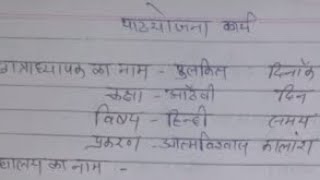 पाठयोजना कार्य
छात्राध्यापक का नाम - पुलकित दिनाँक
कक्षा - आठवी दिन
विषय - हिन्दी समय
प्रकरण - आत्मविश्वास कालांश
द्यालय का नाम -